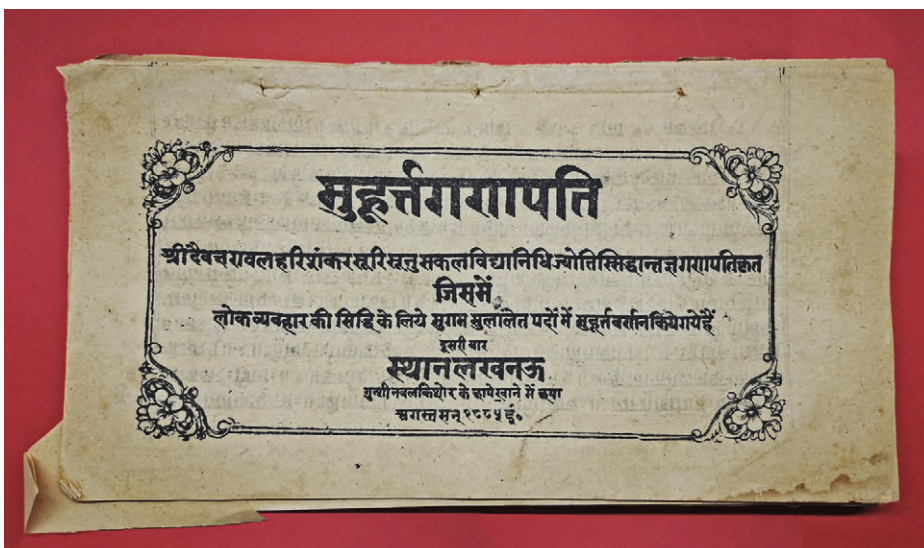 मुहूर्त्तगणपति
श्रीदैवज्ञरावलहरिशंकरसूरिसूनुसकलविद्यानिधिज्योतिस्सिद्धान्तज्ञगणपतिकृत
जिसमें
लोकव्यवहार की सिद्धि के लिये सुगम सुललित पदों में मुहूर्तवर्णन कियेगये हैं
दूसरी बार
स्थान लखनऊ
मुन्शी नवलकिशोर के छापेखाने में छपा
अगस्त सन् १८८५ ई०